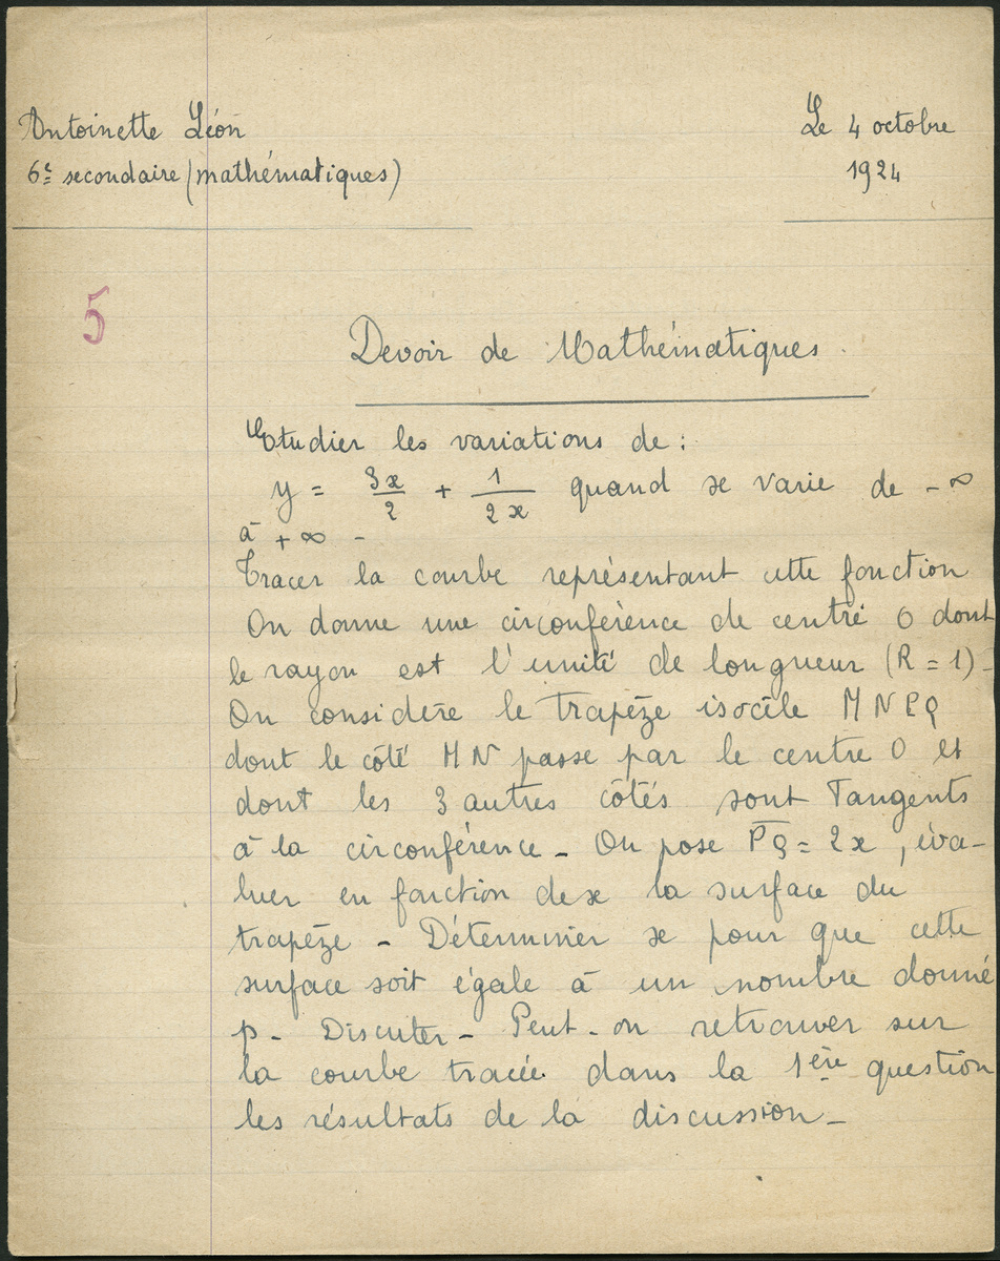 Antoinette Léon
Le 4 octobre
6e secondaire (mathématiques)
1924
5
Devoir de Mathématiques
Etudier les variations de :
y = 3x/2 + 1/2x quand x varie de - ∞
à + ∞ -
Tracer la courbe représentant cette fonction
On donne une circonférence de centre O dont
le rayon est l'unité de longueur (R = 1) -
On considère le trapèze isocèle MNPQ
dont le côté MN passe par le centre O et
dont les 3 autres côtés sont Tangents
à la circonférence - On pose PQ = 2x , éva-
luer en fonction de x la surface du
trapèze - Déterminer x pour que cette
surface soit égale à un nombre donné
p - Discuter - Peut-on retrouver sur
la courbe tracée dans la 1ère question
les résultats de la discussion -